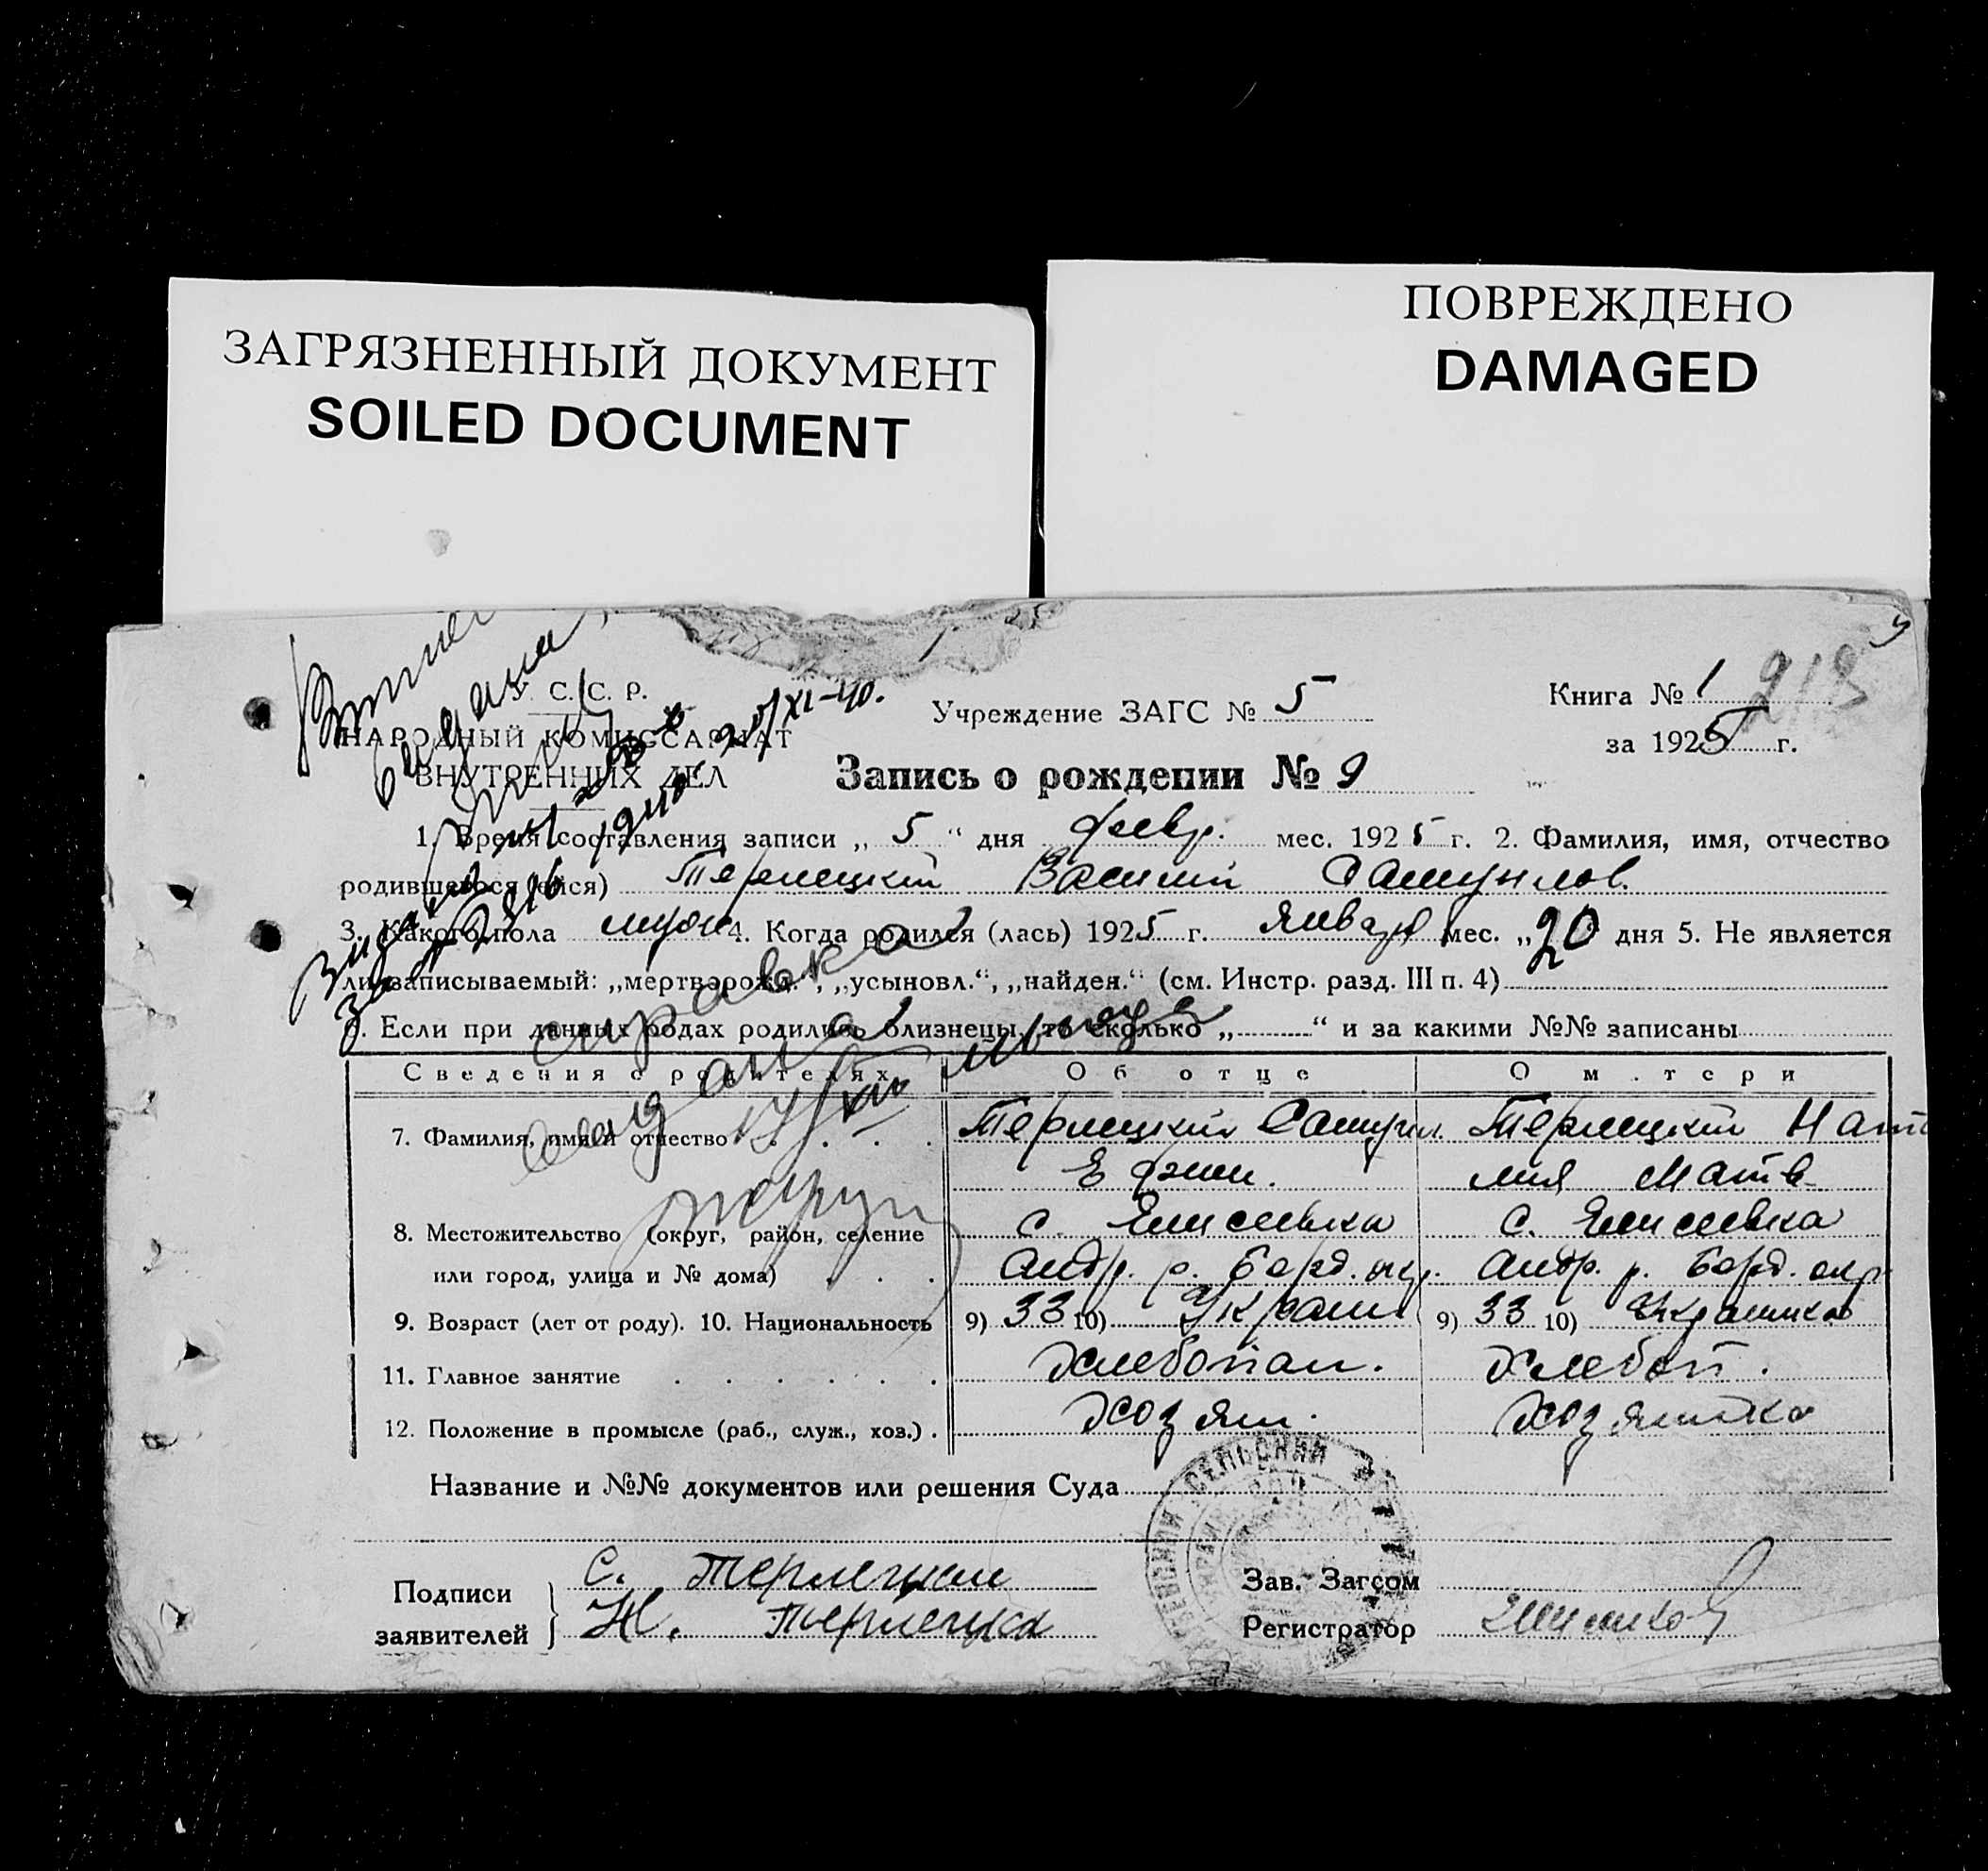 ЗАГРЯЗНЕННЫЙ ДОКУМЕНТ
SOILED DOCUMENT
ПОВРЕЖДЕНО
DAMAGED
У. С. С. Р.
НАРОДНЫЙ КОМИССАРИАТ
ВНУТРЕННИХ ДЕЛ
Учреждение ЗАГС № 5
Книга № 1 218
за 1925 г.
Запись о рождении № 9
1. Время составления записи „ 5 “ дня февр. мес. 1925 г. 2. Фамилия, имя, отчество
родившегося (ейся) Терлецкий Василий Самуилов.
3. Какого пола муж 4. Когда родился (лась) 1925 г. Января мес. „20 дня 5. Не является
ли записываемый: „мертворожд.“, „усыновл.“, „найден.“ (см. Инстр. разд. III п. 4)
6. Если при данных родах родились близнецы, то сколько „ “ и за какими №№ записаны
справка
выдана
Сведения о родителях Об отце О м.тери
7. Фамилия, имя и отчество Терлецкий Самуил. Терлецкий Ната
Ефим. лия Матв
8. Местожительство (округ, район, селение с. Елисеевка с. Елисеевка
или город, улица и № дома) Андр. р. Берд. окр. Андр. р. Берд. окр
9. Возраст (лет от роду). 10. Национальность 9) 33 10) Украин 9) 33 10) Украинка
11. Главное занятие Хлебопаш. Хлебоп.
12. Положение в промысле (раб., служ., хоз.) . Хозяин. Хозяйка
Название и №№ документов или решения Суда
Подписи
заявителей
С. Терлецкий
Н. Терлецка
Зав. Загсом
Регистратор